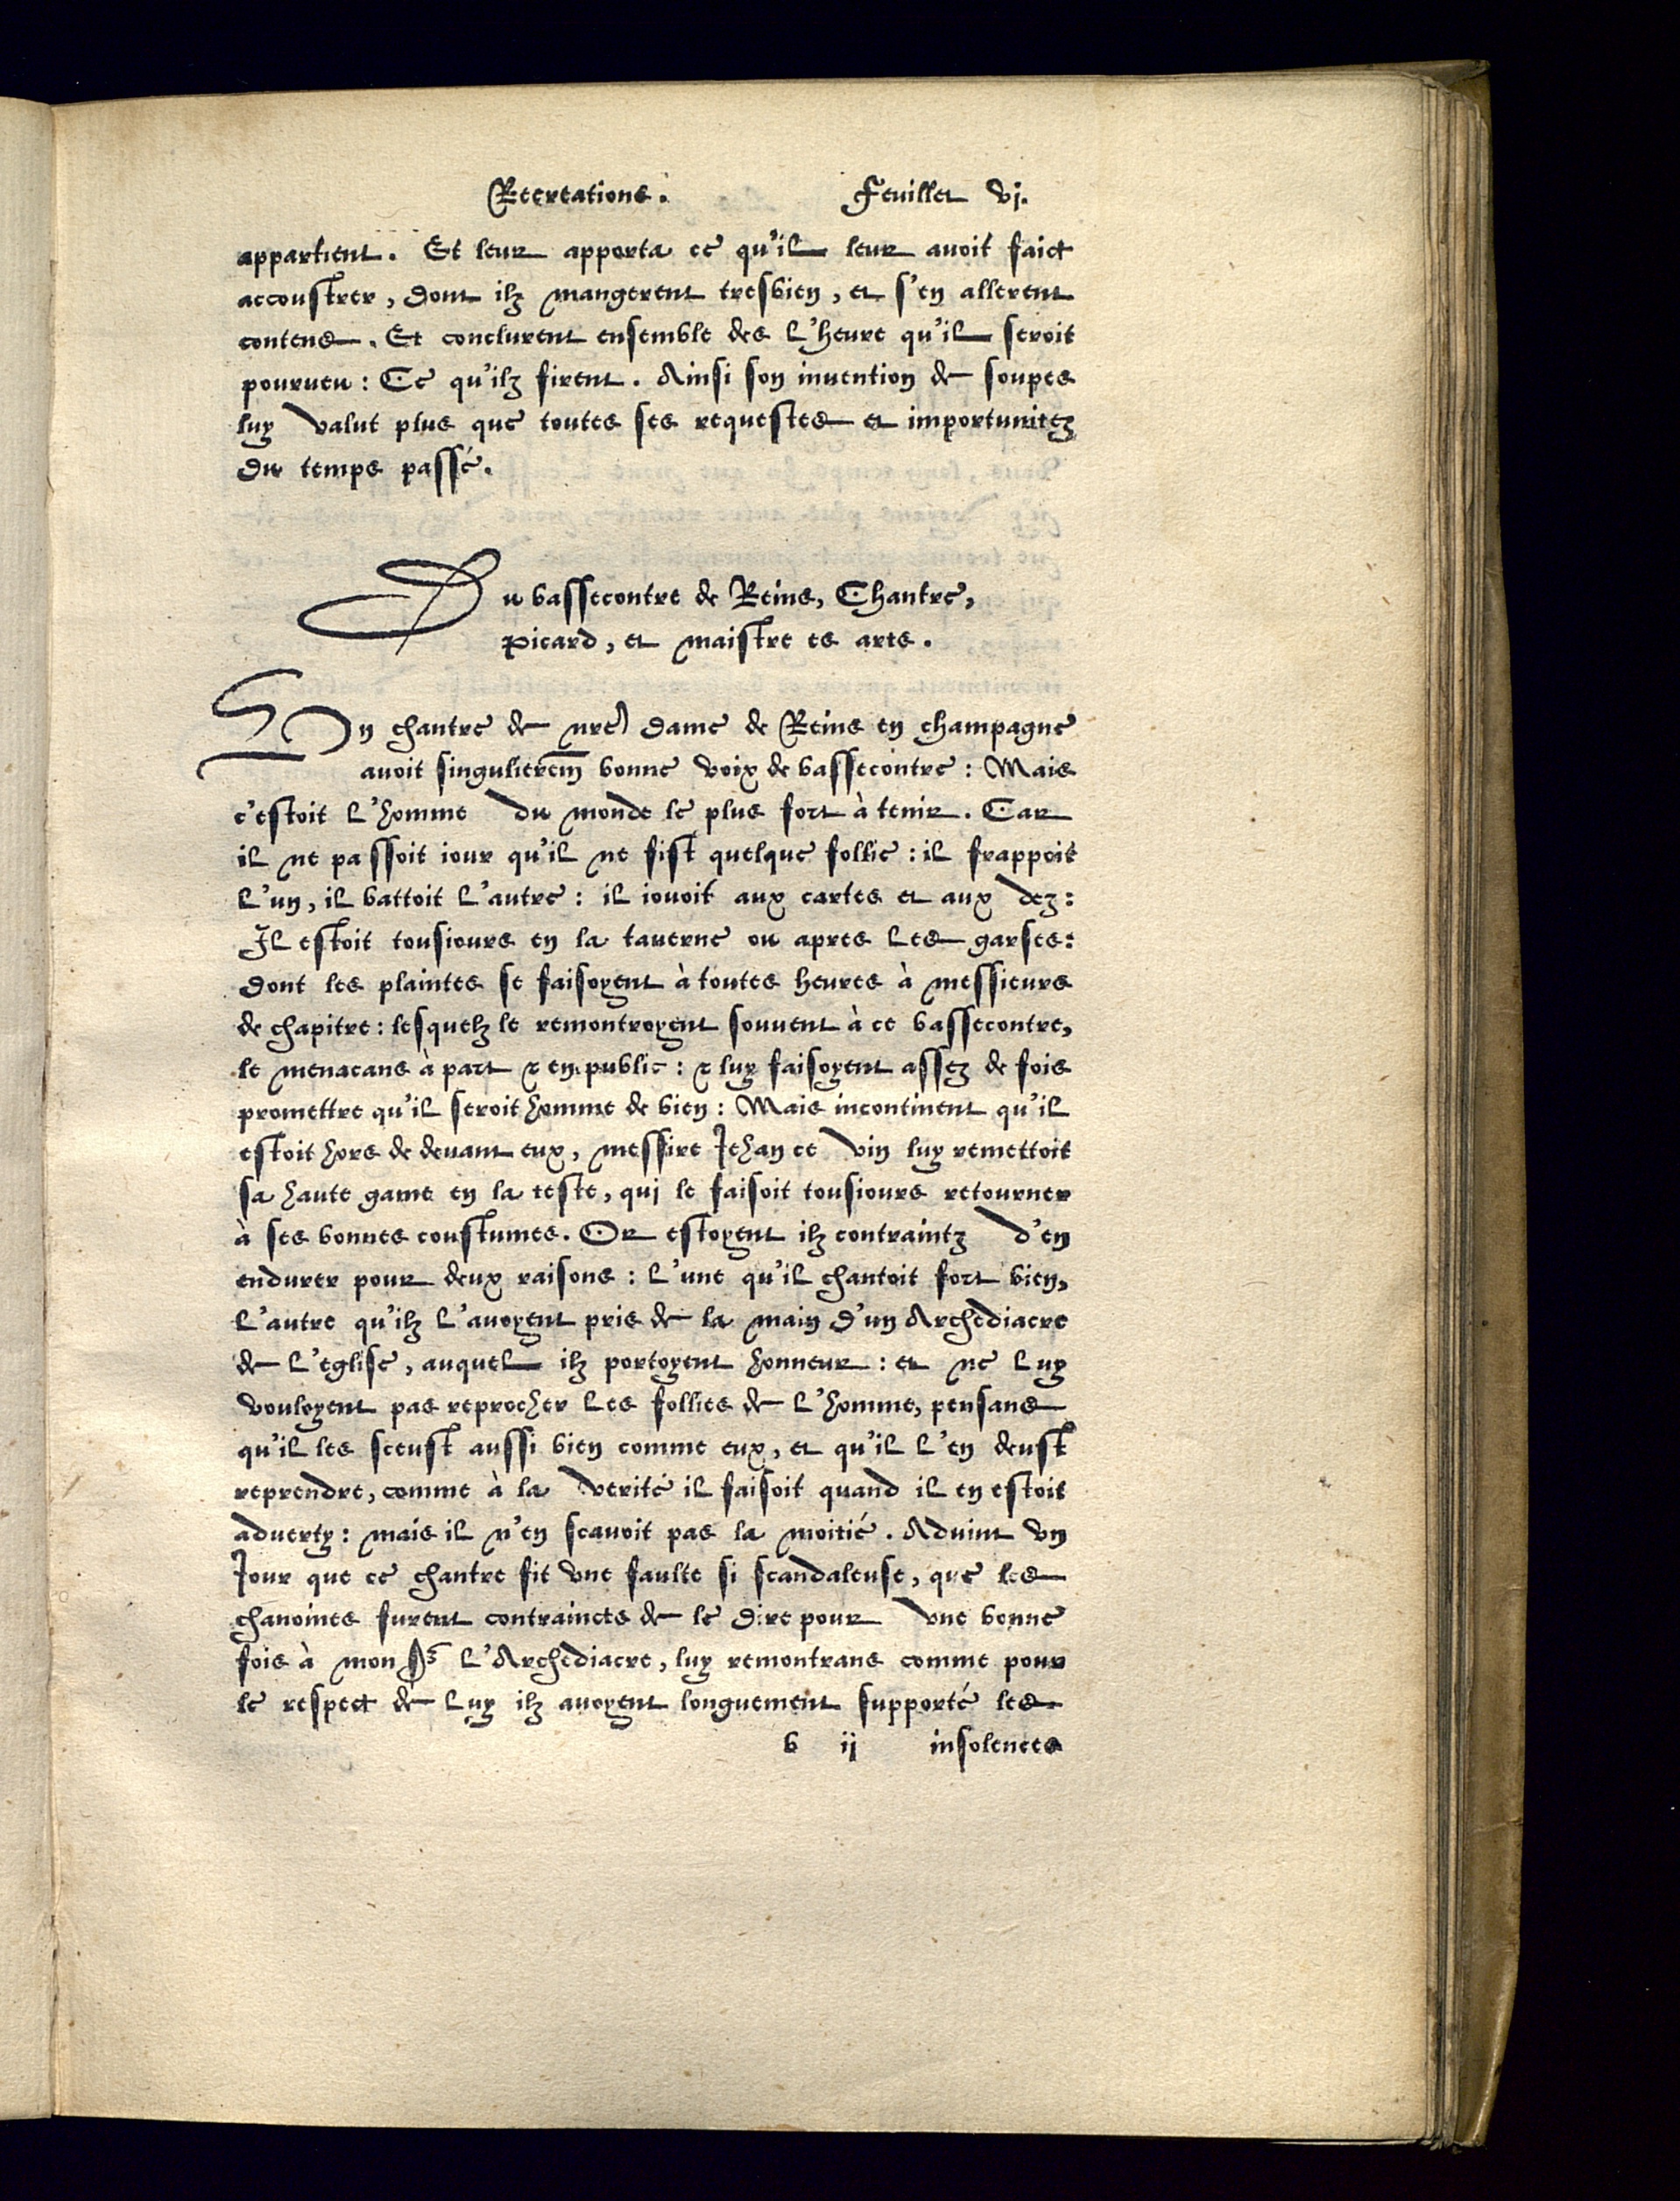 Recreations. Feuillet vj.
appartient. Et leur apporta ce qu'il leur auoit faict
accoustrer, dont ilz mangerent tresbien, et s'en allerent
contens. Et conclurent ensemble des l'heure qu'il seroit
pourueu: Ce qu'ilz firent. Ainsi son inuention de soupes
luy valut plus que toutes ses requestes et importunitez
du temps passé.
Du bassecontre de Reins, Chantre,
picard, et maistre es arts.
Vn chantre de nre dame de Reins en champagne
auoit singulierem̄ bonne voix de bassecontre: Mais
c'estoit l'homme du monde le plus fort à tenir. Car
il ne passoit iour qu'il ne fist quelque follie: il frappoit
l'un, il battoit l'autre: il iouoit aux cartes et aux dez:
Il estoit tousiours en la tauerne ou apres les garses:
dont les plaintes se faisoyent à toutes heures à messieurs
de chapitre: lesquelz le remontroyent souuent à ce bassecontre,
le menacans à part & en public: & luy faisoyent assez de fois
promettre qu'il seroit homme de bien: Mais incontinent qu'il
estoit hors de deuant eux, messire Jehan ce vin luy remettoit
sa haute game en la teste, qui le faisoit tousiours retourner
à ses bonnes coustumes. Or estoyent ilz contraintz d'en
endurer pour deux raisons: l'une qu'il chantoit fort bien,
l'autre qu'ilz l'auoyent pris de la main d'un Archediacre
de l'eglise, auquel ilz portoyent honneur: et ne luy
vouloyent pas reprocher les follies de l'homme, pensans
qu'il les sceust aussi bien comme eux, et qu'il l'en deust
reprendre, comme à la verité il faisoit quand il en estoit
aduerty: mais il n'en scauoit pas la moitié. Aduint vn
Jour que ce chantre fit vne faulte si scandaleuse, que les
chanoines furent contraincts de le dire pour vne bonne
fois à mon sʳ l'Archediacre, luy remontrans comme pour
le respect de luy ilz auoyent longuement supporté les
b ij insolences